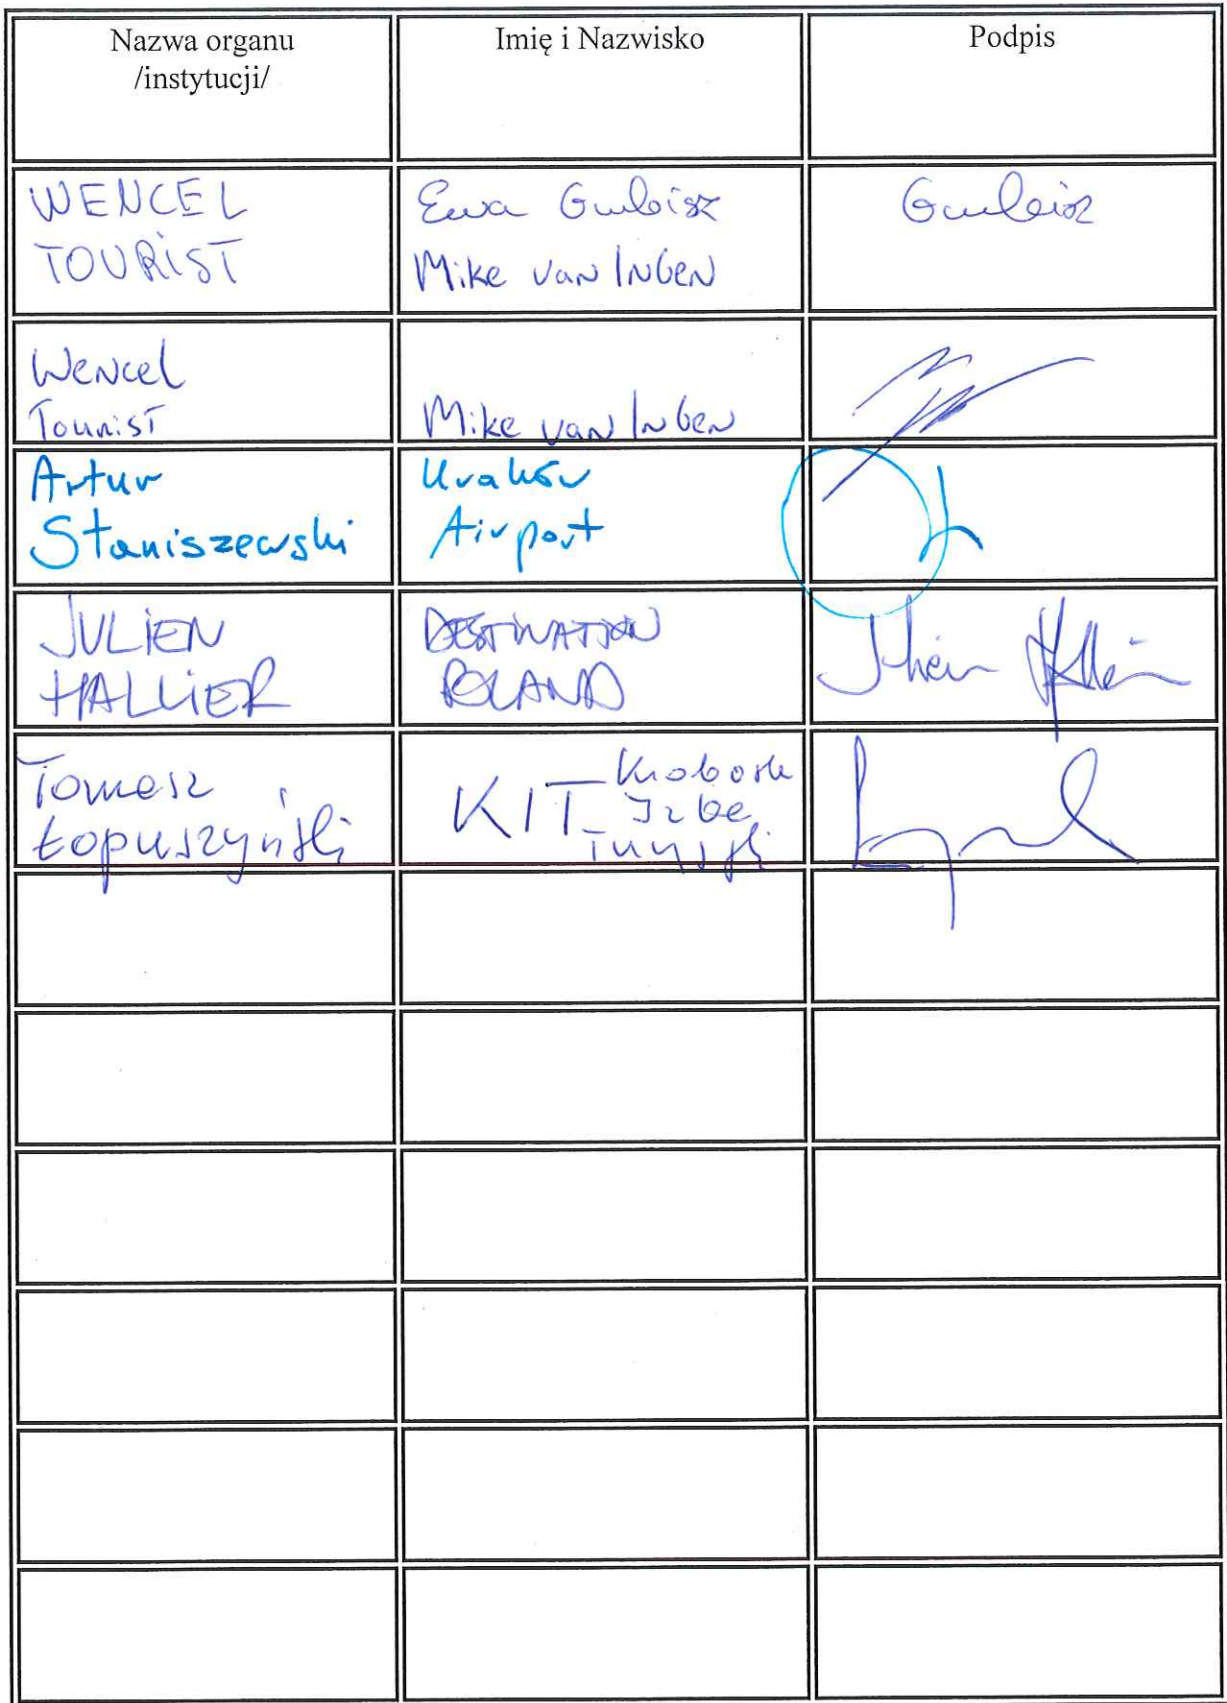 Nazwa organu
/instytucji/
Imię i Nazwisko
Podpis
WENCEL
TOURIST
Ewa Gubisz
Mike van Ingen
Wencel
Tourist
Mike van Ingen
Artur
Staniszewski
Kraków
Airport
JULIEN
HALLIER
DESTINATION
POLAND
Julien Hallier
Tomasz
Łopuszyński
KIT
Izba